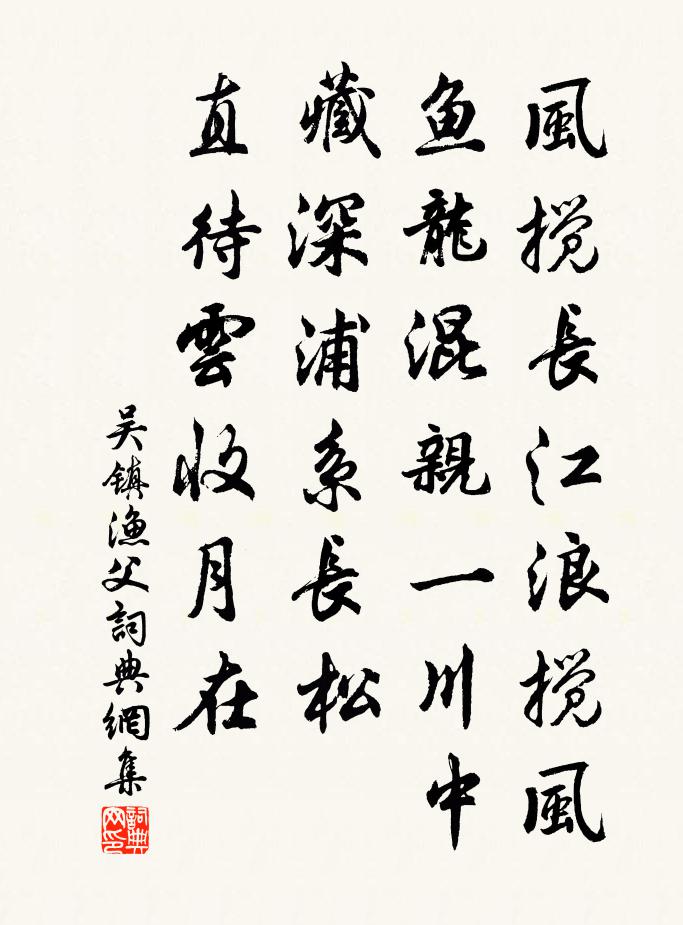 風搅長江浪搅風
鱼龍混親一川中
藏深浦系長松
直待雲收月在
吴镇渔父詞典網集
詞典网印